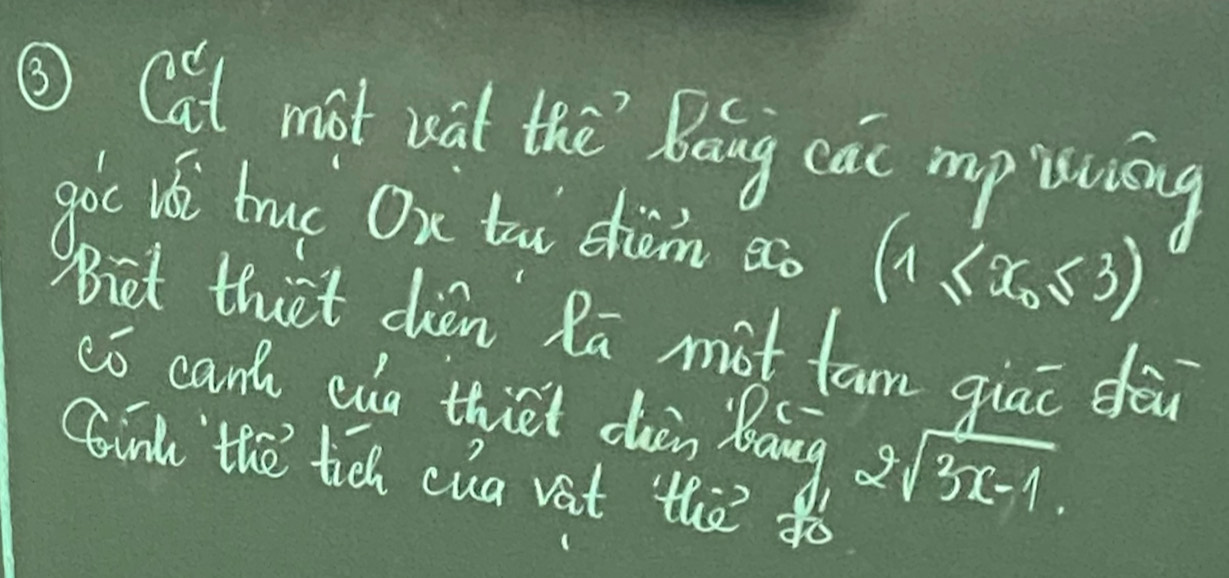 ③ Cắt một vật thể bằng các mp vuông
góc với trục Ox tại điểm x₀ (1 ≤ x₀ ≤ 3)
Biết thiết diện là một tam giác đều
có cạnh của thiết diện bằng 2√3x-1.
Tính thể tích của vật thể đó